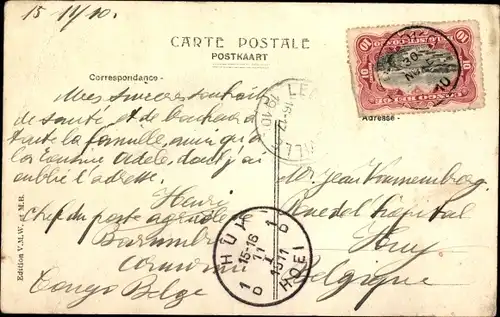 15/11/10.
CARTE POSTALE
POSTKAART
Correspondance
Adresse
Mes sincères souhaits
de santé, et de bonheur à
toute la famille, ainsi qu'à
la cousine Adèle, dont j'ai
oublié l'adresse.
Henri
Chef du poste agricole
Congo Belge
Mr Jean
Rue de l'hôpital
Huy
Belgique
HUY
1 D
15-16
11 I
1911
1 D
HOEI
15-12
10
10
10
10
Edition V.M.W. et M.R.